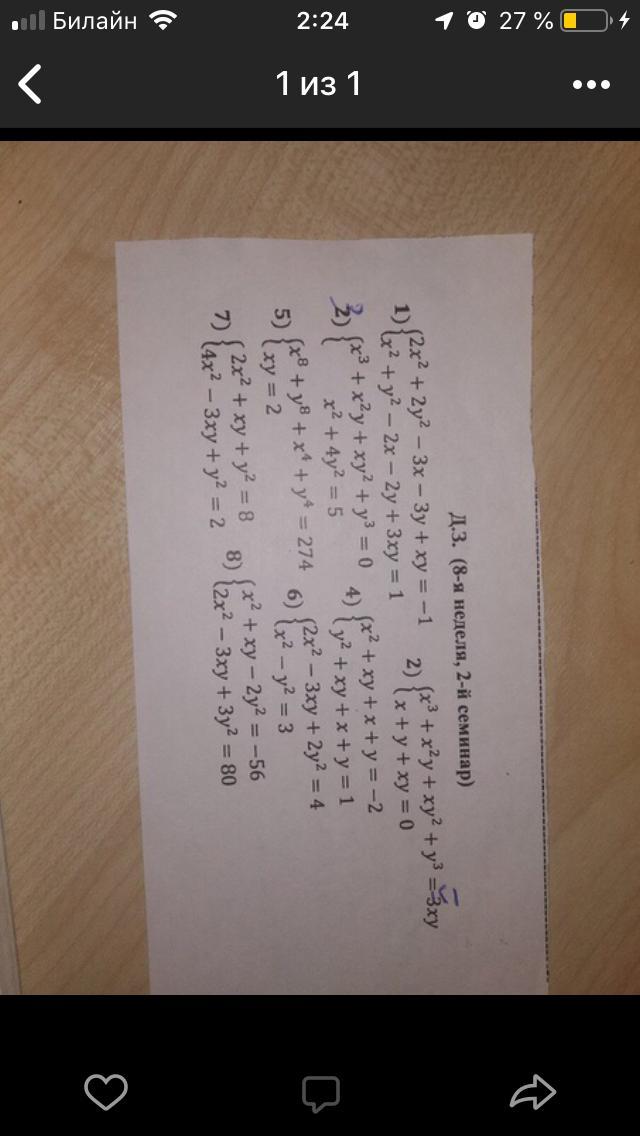 Билайн 2:24 27 %
1 из 1
Д.З. (8-я неделя, 2-й семинар)
1) {2x² + 2y² − 3x − 3y + xy = −1
x² + y² − 2x − 2y + 3xy = 1
2) {x³ + x²y + xy² + y³ = 3xy
x + y + xy = 0
2) {x³ + x²y + xy² + y³ = 0
x² + 4y² = 5
3
4) {x² + xy + x + y = −2
y² + xy + x + y = 1
5) {x⁸ + y⁸ + x⁴ + y⁴ = 274
xy = 2
6) {2x² − 3xy + 2y² = 4
x² − y² = 3
7) {2x² + xy + y² = 8
4x² − 3xy + y² = 2
8) {x² + xy − 2y² = −56
2x² − 3xy + 3y² = 80